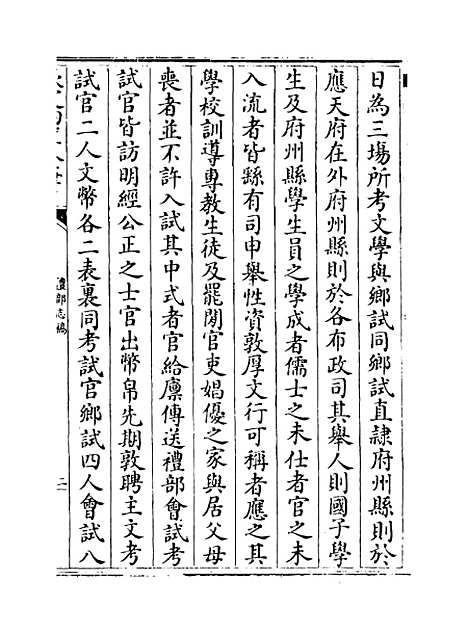 日為三場所考文學與鄉試同鄉試直隷府州縣則於
應天府在外府州縣則於各布政司其舉人則國子學
生及府州縣學生員之學成者儒士之未仕者官之未
入流者皆繇有司申舉性資敦厚文行可稱者應之其
學校訓導專教生徒及罷閒官吏娼優之家與居父母
喪者並不許入試其中式者官給廩傳送禮部會試考
試官皆訪明經公正之士官出幣帛先期敦聘主文考
試官二人文幣各二表裏同考試官鄉試四人會試八
禮部志稿
二